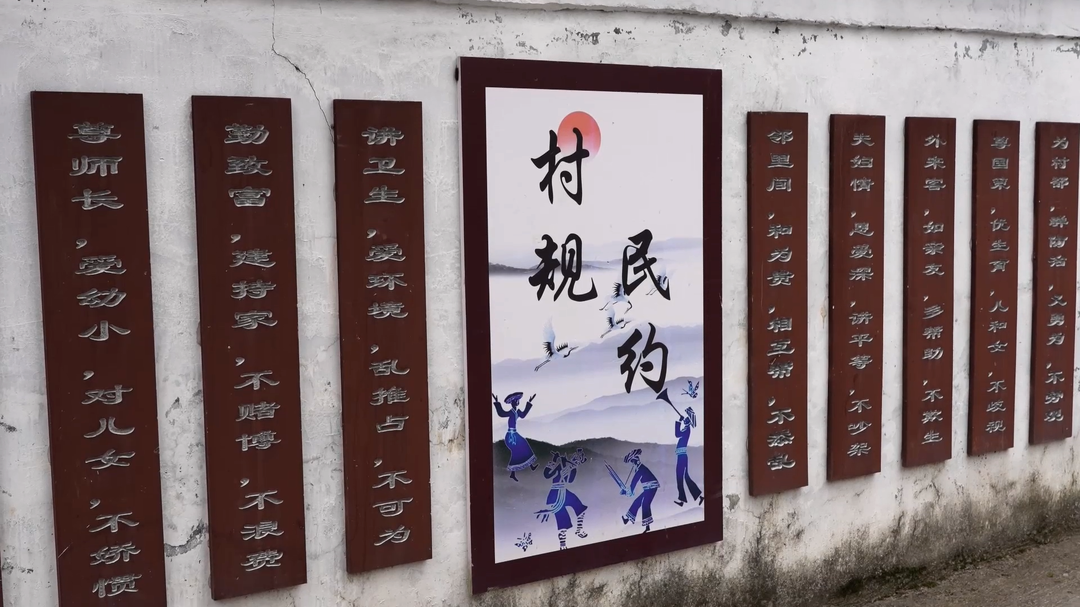 尊师长，爱幼小，对儿女，不娇惯
勤致富，建持家，不赌博，不浪费
讲卫生，爱环境，乱推占，不可为
村规
民约
邻里间，和为贵，相互帮，不添乱
夫妇情，恩爱深，讲平等，不吵架
外来客，如亲友，多帮助，不欺生
尊国策，优生育，儿和女，不歧视
为村部，群防治，义勇为，不旁观